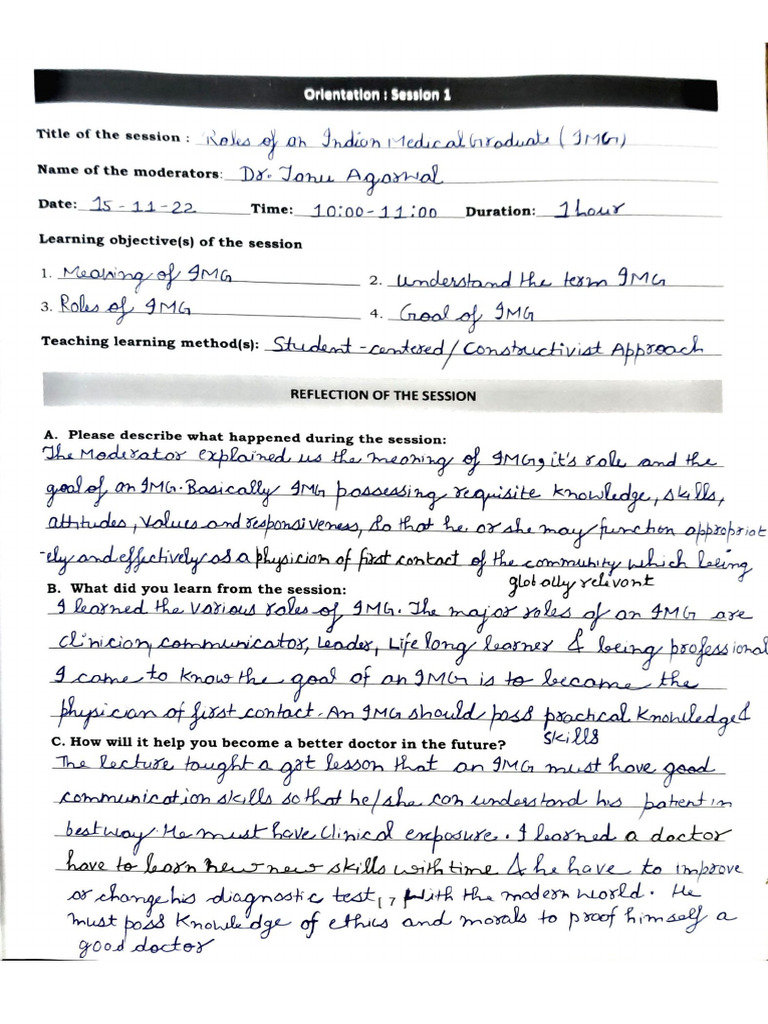 Orientation : Session 1
Title of the session : Roles of an Indian Medical Graduate (IMG)
Name of the moderators: Dr. Tonu Agarwal
Date: 15-11-22 Time: 10:00-11:00 Duration: 1 hour
Learning objective(s) of the session
1. Meaning of IMG 2. Understand the term IMG
3. Roles of IMG 4. Goal of IMG
Teaching learning method(s): Student-centered/Constructivist Approach
REFLECTION OF THE SESSION
A. Please describe what happened during the session:
The Moderator explained us the meaning of IMG, it's role and the
goal of an IMG. Basically IMG possessing requisite knowledge, skills,
attitudes, values and responsiveness, so that he or she may function appropriat
-ely and effectively as a physician of first contact of the community which being
globally relevant
B. What did you learn from the session:
I learned the various roles of IMG. The major roles of an IMG are
clinician, communicator, Leader, Life long learner & being professional
I came to know the goal of an IMG is to became the
physician of first contact. An IMG should poss practical knowledge &
skills
C. How will it help you become a better doctor in the future?
The lecture taught a grt lesson that an IMG must have good
communication skills so that he/she can understand his patient in
best way. He must have Clinical exposure. I learned a doctor
have to learn new new skills with time & he have to improve
or change his diagnostic test, with the modern world. He
must poss knowledge of ethics and morals to proof himself a
good doctor